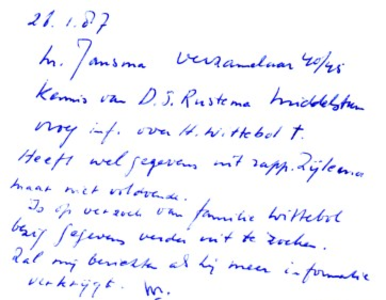 21.1.87
hr. Jansma verzamelaar 40/45
Kennis van D.S. Rustema Middelstum
vroeg inf. over H. Wittebol †.
Heeft wel gegevens uit rapp. Zijlema
maar niet voldoende.
Is op verzoek van familie Wittebol
bezig gegevens verder uit te zoeken.
Zal mij berichten als hij meer informatie
verkrijgt.